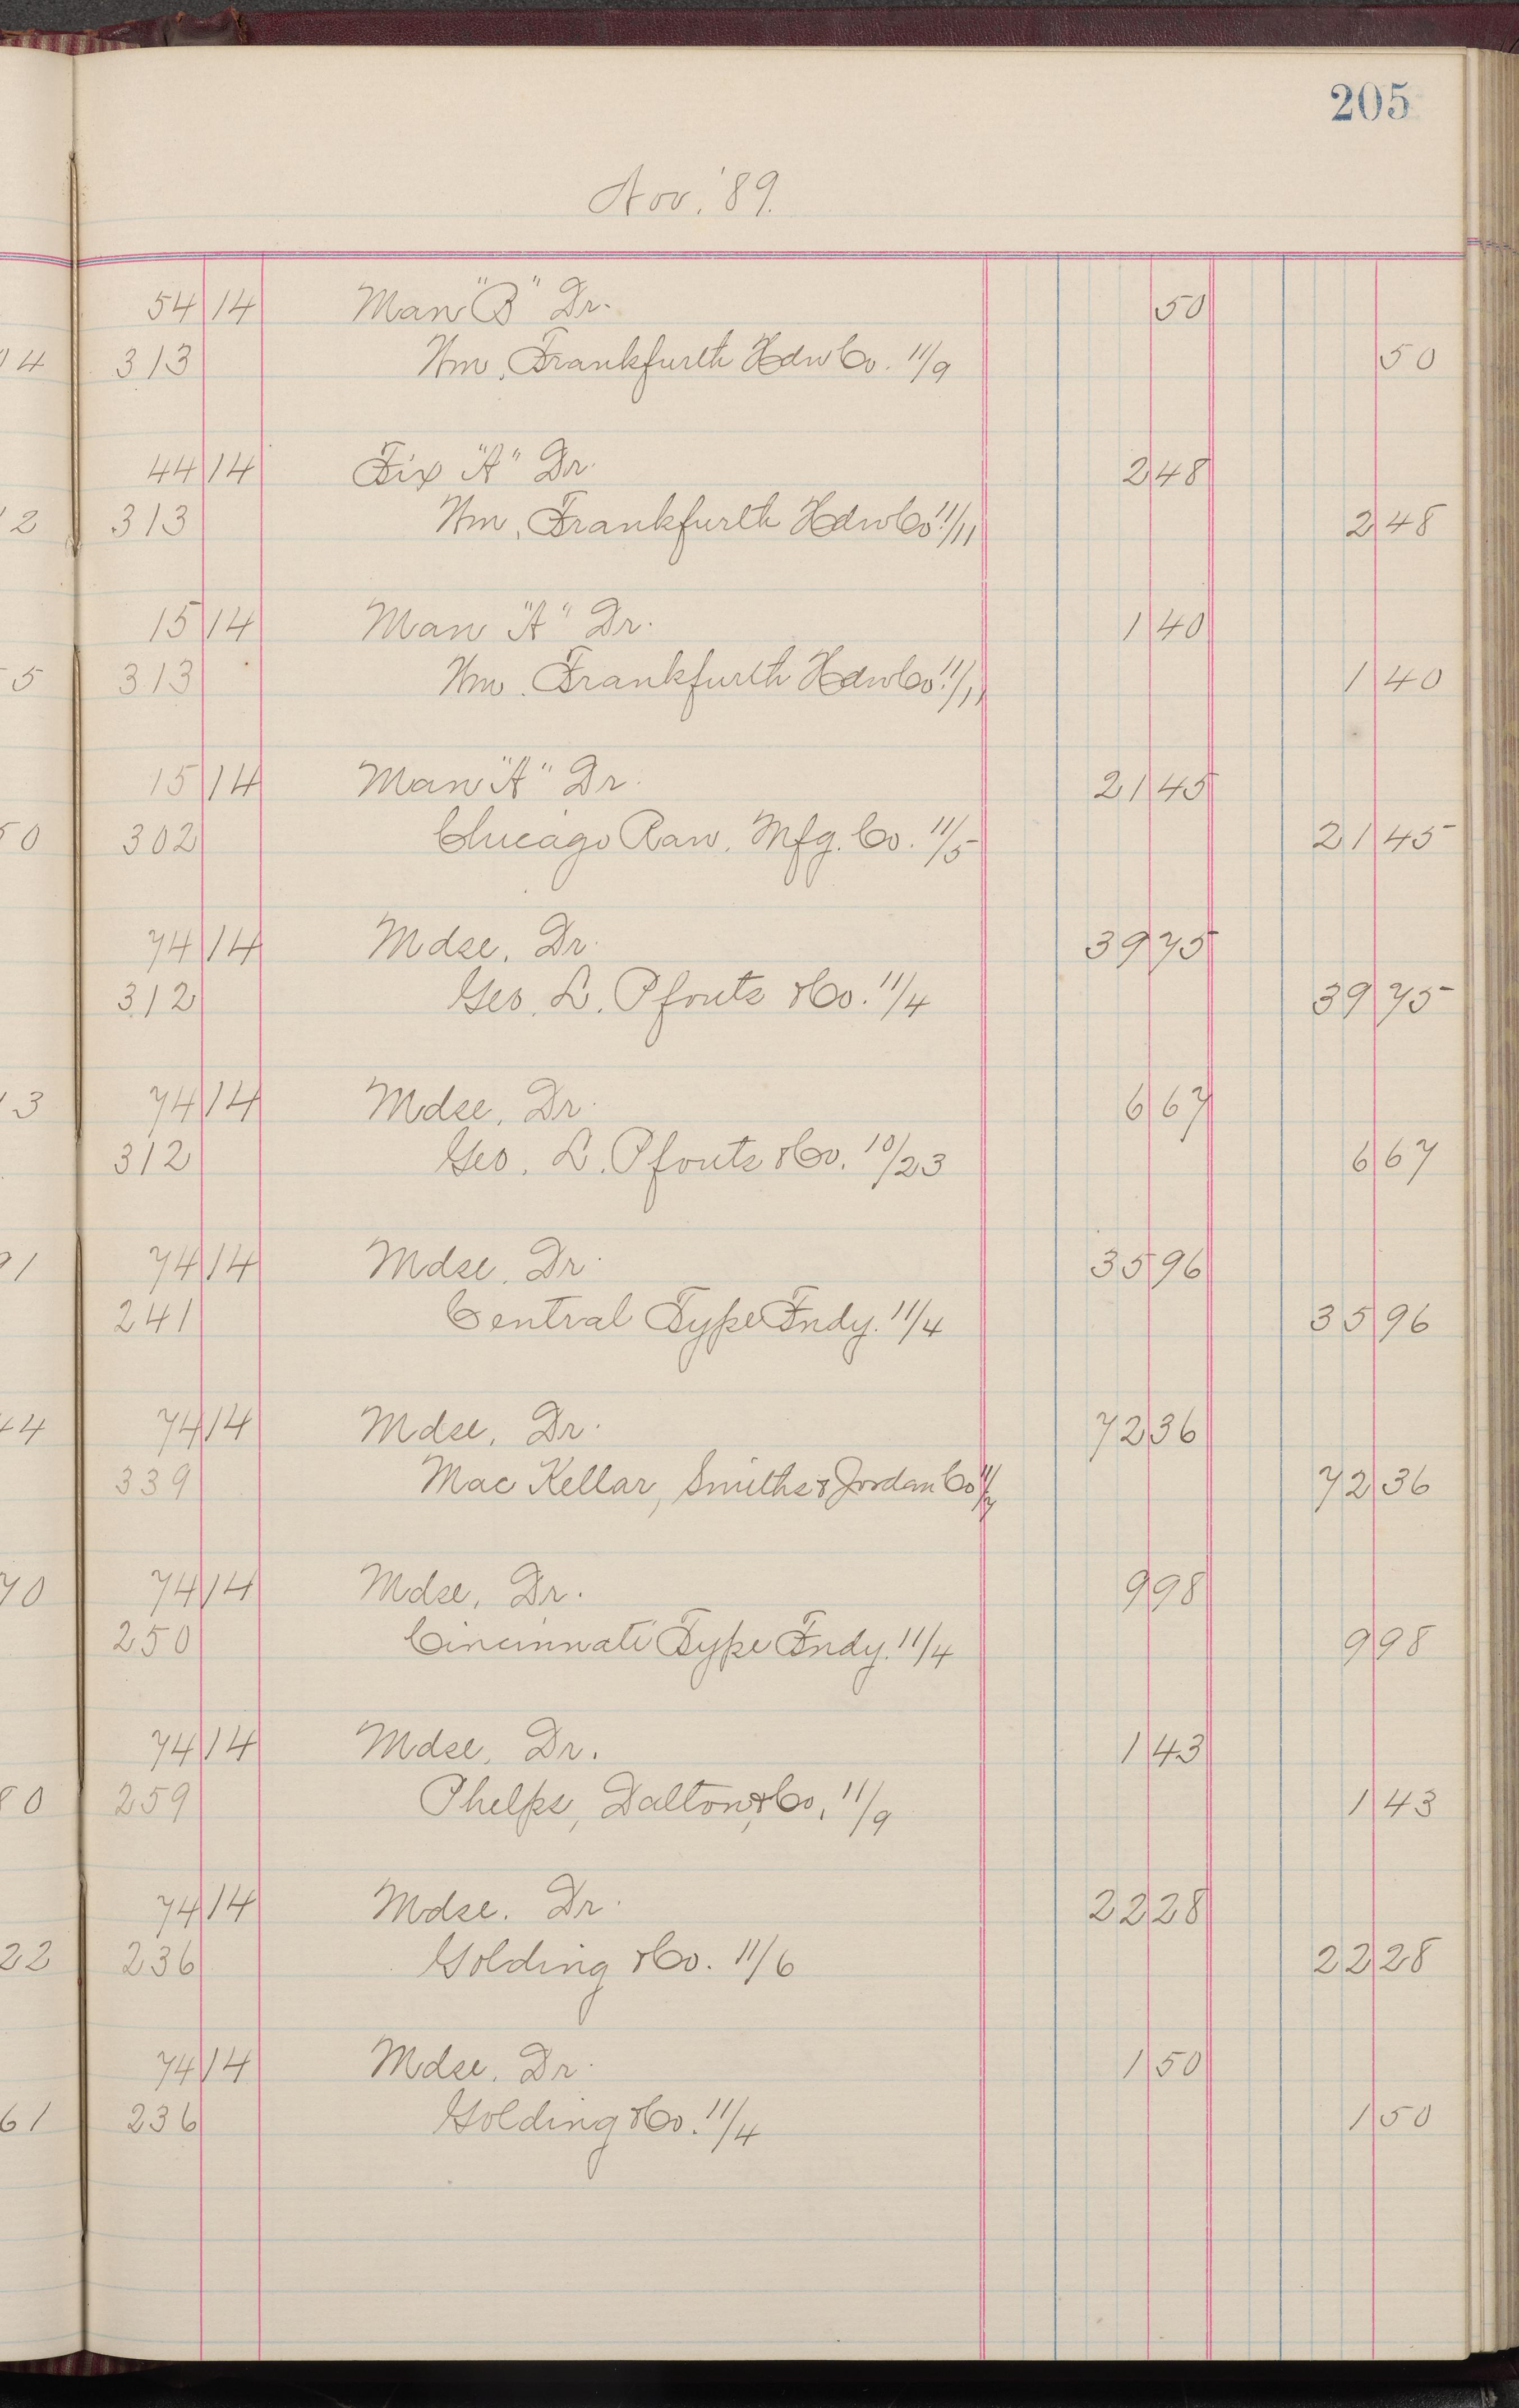 205
Nov. '89.
54 14 Man "B" Dr. 50
14 313 Wm. Frankfurth Hdw Co. 11/9 50
44 14 Fix "A" Dr. 2 48
12 313 Wm. Frankfurth Hdw Co. 11/11 2 48
15 14 Man "A" Dr. 1 40
5 313 Wm. Frankfurth Hdw Co. 11/11 1 40
15 14 Man "A" Dr. 21 45
50 302 Chicago Raw. Mfg. Co. 11/5 21 45
74 14 Mdse. Dr. 39 75
312 Geo. L. Pfouts & Co. 11/4 39 75
13 74 14 Mdse. Dr. 6 67
312 Geo. L. Pfouts & Co. 10/23 6 67
91 74 14 Mdse. Dr. 35 96
241 Central Type Fndy. 11/4 35 96
44 74 14 Mdse. Dr. 72 36
339 Mac Kellar, Smiths & Jordan Co 11/7 72 36
70 74 14 Mdse. Dr. 9 98
250 Cincinnati Type Fndy. 11/4 9 98
74 14 Mdse. Dr. 1 43
80 259 Phelps, Dalton, & Co. 11/9 1 43
74 14 Mdse. Dr. 22 28
22 236 Golding & Co. 11/6 22 28
74 14 Mdse. Dr. 1 50
61 236 Golding & Co. 11/4 1 50